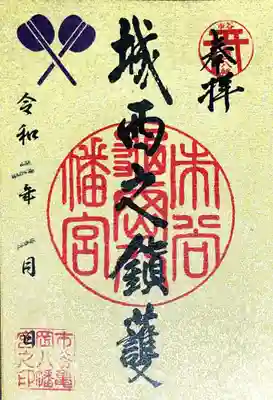 奉拝
城西之鎮護
市谷
幡宮
令和 年 月 日
市谷亀
岡八幡
宮之印